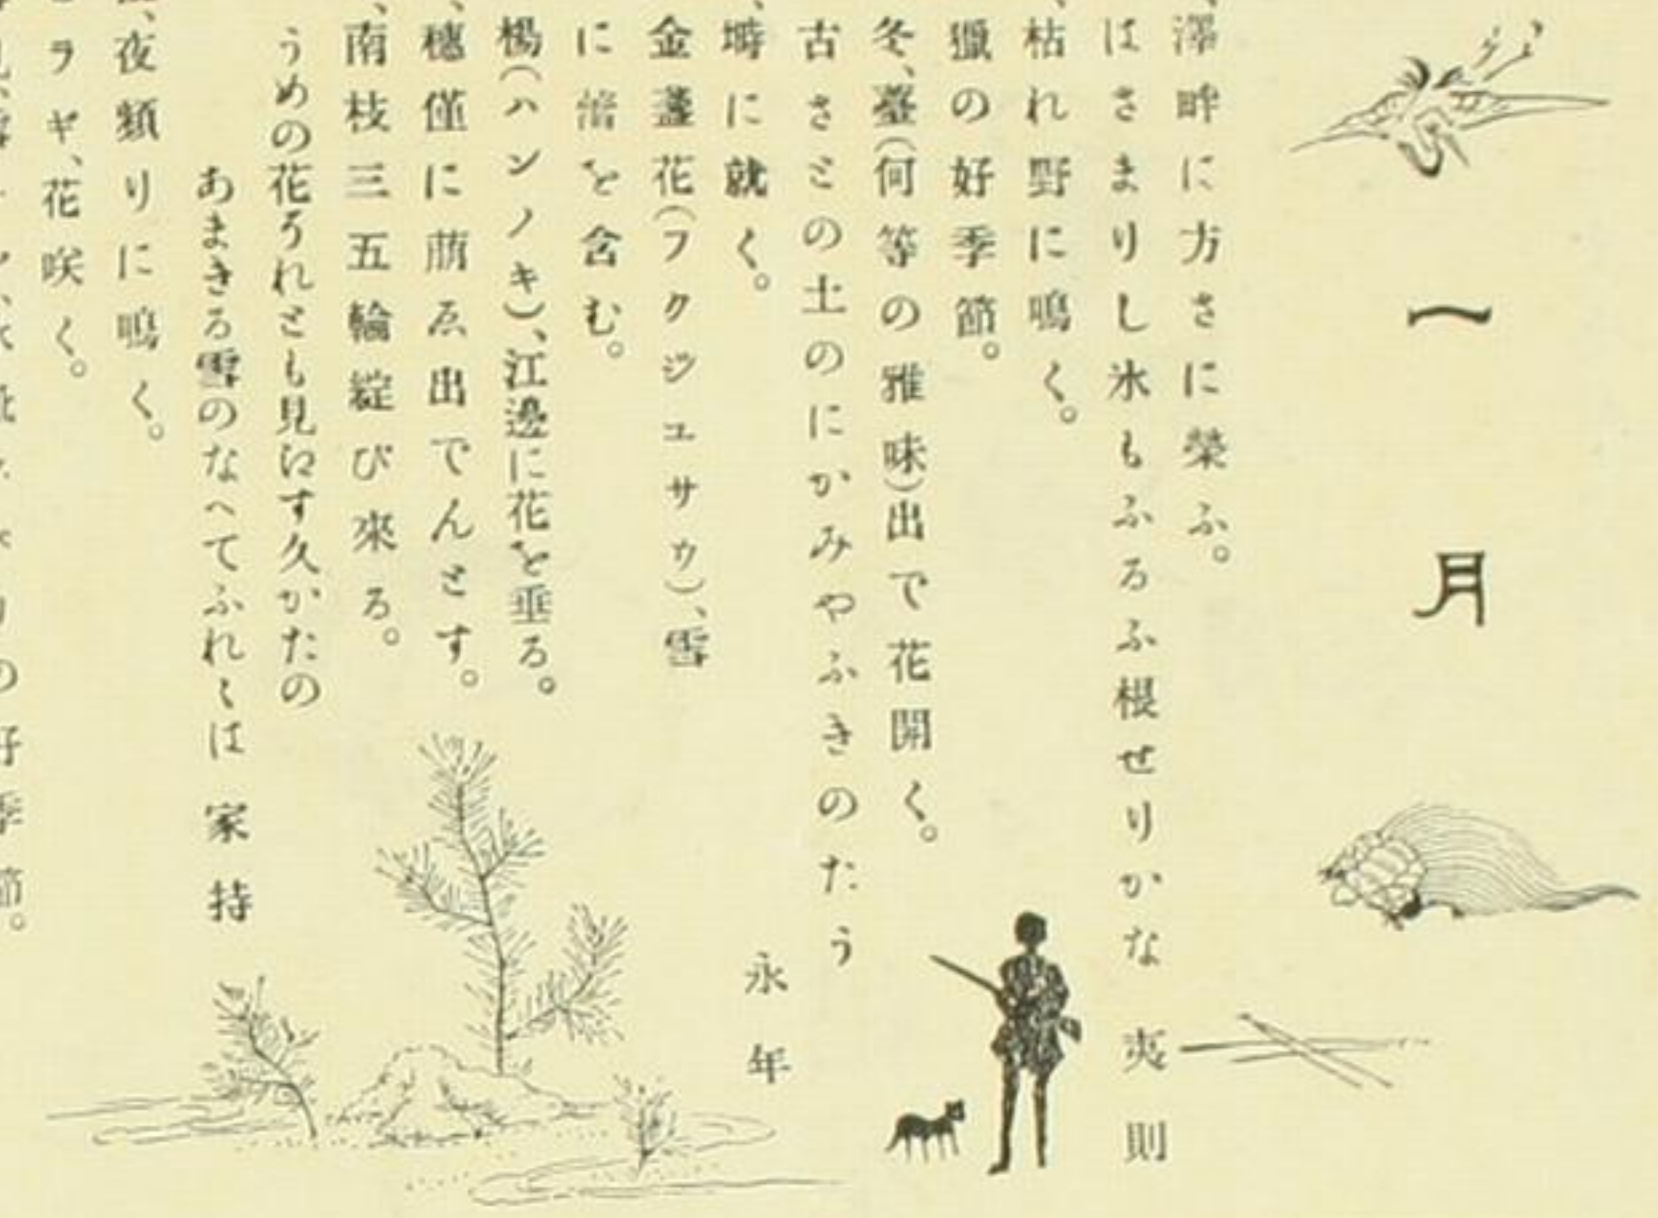 一月
、澤畔に方さに榮ふ。
はさまりし氷もふろふ根せりかな 夷則
、枯れ野に鳴く。
獵の好季節。
冬、薹(何等の雅味)出で花開く。
古さとの土のにかみやふきのたう
永年
、塒に就く。
金盞花(フクジュサウ)、雪
に莟を含む。
楊(ハンノキ)、江邊に花を垂る。
、穗僅に萠ゑ出でんとす。
、南枝三五輪綻び來る。
うめの花それとも見えす久かたの
あまきる雪のなへてふれゝは 家持
、夜頻りに鳴く。
ラギ、花咲く。
の好季節。